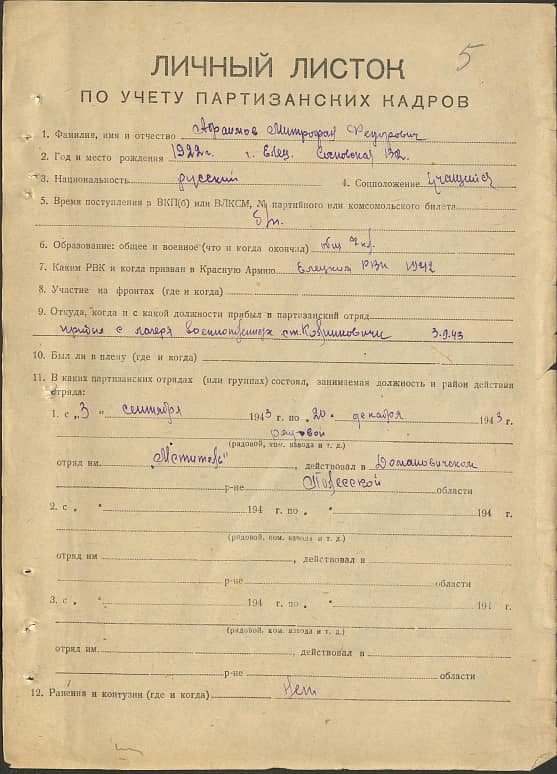 5
ЛИЧНЫЙ ЛИСТОК
ПО УЧЕТУ ПАРТИЗАНСКИХ КАДРОВ
1. Фамилия, имя и отчество Абраимов Митрофан Федорович
2. Год и место рождения 1922г. г. Елец. Сосновская 132.
3. Национальность русский 4. Соцположение учащийся
5. Время поступления в ВКП(б) или ВЛКСМ, № партийного или комсомольского билета
б/п.
6. Образование: общее и военное (что и когда окончил) общ 7 кл.
7. Каким РВК и когда призван в Красную Армию Елецким РВК 1942
8. Участие на фронтах (где и когда)
9. Откуда, когда и с какой должности прибыл в партизанский отряд
прибыл с лагеря военнопленных ст. 3.9.43
10. Был ли в плену (где и когда)
11. В каких партизанских отрядах (или группах) состоял, занимаемая должность и район действия
отряда:
1. с „3 " сентября 1943 г. по „20 " декабря 1943 г.
рядовой
(рядовой, ком. взвода и т. д.)
отряд им. „Мститель" , действовал в Домановичском
р-не Полесской области
2. с „ " 194 г. по „ " 194 г.
(рядовой, ком. взвода и т. д.)
отряд им , действовал в
р-не области
3. с „ " 194 г. по „ " 194 г.
(рядовой, ком. взвода и т. д.)
отряд им. , действовал в
р-не области
12. Ранения и контузии (где и когда) Нет